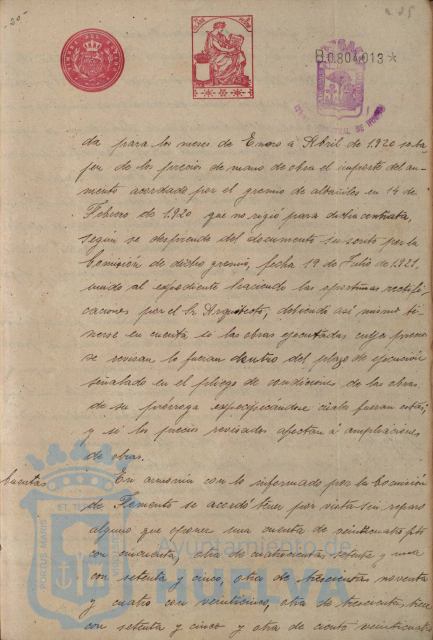 B.0.804.013*
da para los meses de Enero á Abril de 1.920 reba-
jen de los precios de mano de obra el importe del au-
mento acordado por el gremio de albañiles en 14 de
Febrero de 1.920 que no rigió para dicha contrata,
según se desprende del documento suscrito por la
Comisión de dicho gremio, fecha 19 de Julio de 1.921,
unido al expediente haciendo las oportunas rectifi-
caciones por el Sr. Arquitecto, debiendo así mismo te-
nerse en cuenta si las obras ejecutadas cuyos precios
se revisan lo fueran dentro del plazo de ejecución
señalado en el pliego de condiciones de las obras
de su prórroga especificándose cuales fueran estas,
y si los precios revisados afectan á ampliaciones
de obras.
Cuentas
En armonía con lo informado por la Comisión
de Fomento se acordó tener por vista sin reparo
alguno que oponer una cuenta de veinticuatro ptas
con cincuenta, otra de cuatrocientas setenta y una
con setenta y cinco, otra de trescientas noventa
y cuatro con veinticinco, otra de trescientas trece
con setenta y cinco y otra de ciento veinticuatro
Ayuntamiento de
HUELVA
PORTUS MARIS